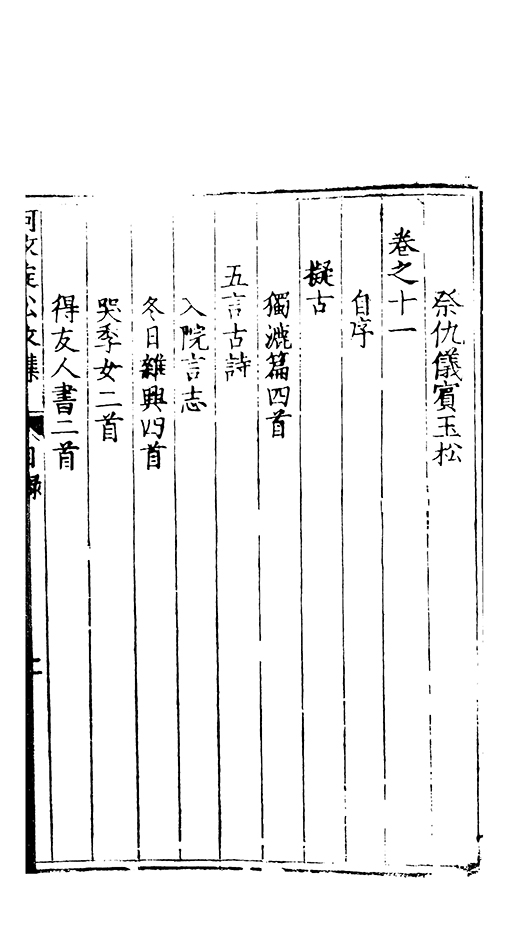 祭仇儀賓玉松
卷之十一
自序
擬古
獨漉篇四首
五言古詩
入院言志
冬日雜興四首
哭季女二首
得友人書二首
目錄